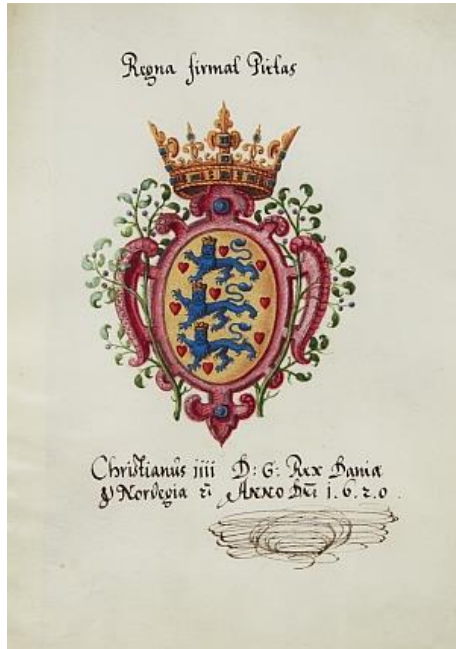 Regna firmat Pietas
Christianus iiii D: G: Rex Daniæ
& Norvegiæ ꝛc̄ Anno Dn̄i 1.6.20.